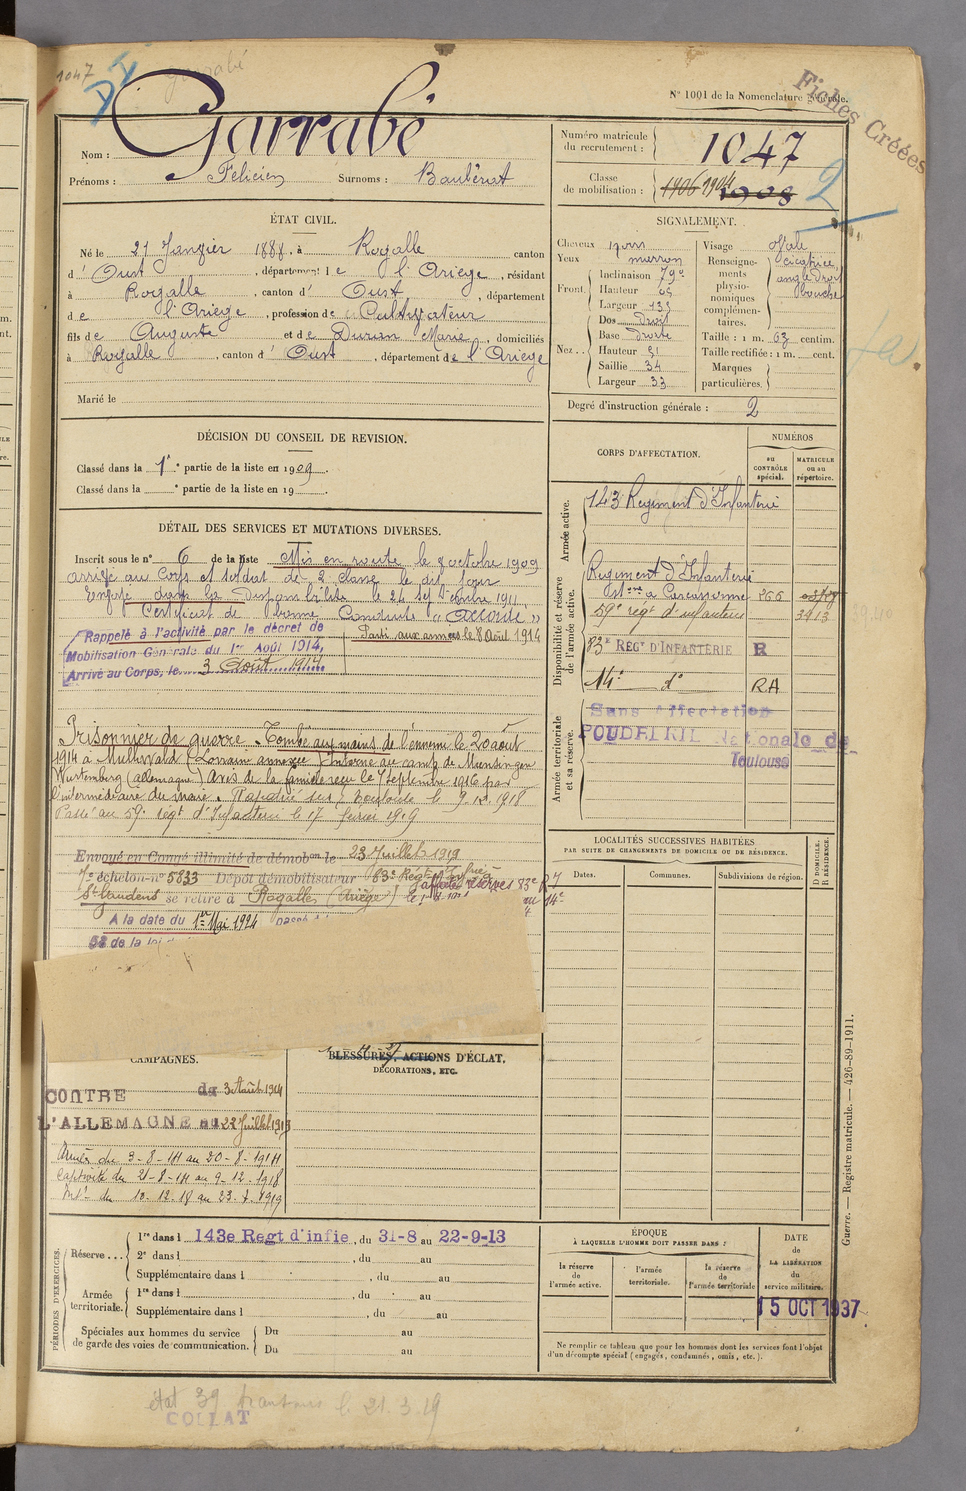 1047
Garrabé
N° 1001 de la Nomenclature générale.
Fiches Créées
Nom : Garrabé
Prénoms : Félicien Surnoms :
Numéro matricule du recrutement : 1047
Classe de mobilisation : 1906 1904 1908
2
ÉTAT CIVIL.
Né le 27 Janvier 1888, à Rogalle canton
d'Oust, département de l'Ariège, résidant
à Rogalle, canton d'Oust, département
de l'Ariège, profession de Cultivateur
fils de Auguste et de Duran Marie, domiciliés
à Rogalle, canton d'Oust, département de l'Ariège
Marié le
SIGNALEMENT.
Cheveux
Yeux marron
Front. Inclinaison
Hauteur
Largeur
Nez.. Dos Droit
Base Droite
Hauteur 31
Saillie 34
Largeur 33
Visage Ovale
Renseignements physionomiques complémentaires. cicatrice, angle droit bouche
Taille : 1 m. 63 centim.
Taille rectifiée : 1 m. cent.
Marques particulières.
Degré d'instruction générale : 2
DÉCISION DU CONSEIL DE REVISION.
Classé dans la 1e partie de la liste en 1909.
Classé dans la e partie de la liste en 19 .
DÉTAIL DES SERVICES ET MUTATIONS DIVERSES.
Inscrit sous le n° 6 de la liste Mis en route le 8 octobre 1909
arrivé au Corps et soldat de 2 classe le dit jour
dans la Disponibilité le 24 septembre 1911.
Certificat de bonne Conduite "Accordé"
Rappelé à l'activité par le décret de
Mobilisation Générale du 1er Août 1914,
Arrivé au Corps, le 3 Août 1914
Parti aux armées le 8 Août 1914
Prisonnier de guerre. Tombé aux mains de l'ennemi le 20 août
1914 à (Lorraine annexée) Interné au camp de Munsingen
Wurtemberg (allemagne) Avis de la famille reçu le 7 Septembre 1916 par
l'intermédiaire du maire. Rapatié Toulouse le 9.12.1918
Passé au 59e régt d'Infanterie le 17 février 1919
Envoyé en Congé illimité de démobon le 23 Juillet 1919
7e échelon n° 5833 Dépôt démobilisateur 83e Régt Infrie à
St Gaudens se retire à Rogalles (Ariège)
A la date du 1er Mai 1924
58 de la loi
CORPS D'AFFECTATION.
NUMÉROS
au CONTRÔLE spécial.
MATRICULE ou au répertoire.
Armée active.
143e Régiment d'Infanterie
Disponibilité et réserve de l'armée active.
Régiment d'Infanterie
à Carcassonne 266
59e régt d'infanterie 3913
83e RÉGt D'INFANTERIE R
14e do RA
Armée territoriale et sa réserve.
Sans Affectation
POUDRERIE Nationale de
Toulouse
LOCALITÉS SUCCESSIVES HABITÉES
PAR SUITE DE CHANGEMENTS DE DOMICILE OU DE RÉSIDENCE.
Dates. Communes. Subdivisions de région. D DOMICILE. R RÉSIDENCE.
CAMPAGNES.
CONTRE du 3 Août 1914
L'ALLEMAGNE au 22 Juillet 1919
Armées du 3-8-14 au 20-8-1914
Captivité du 21-8-14 au 9-12-1918
Intr du 10-12-18 au 23-7-1919
BLESSURES, ACTIONS D'ÉCLAT,
DÉCORATIONS, ETC.
PÉRIODES D'EXERCICES.
Réserve... 1re dans l 143e Regt d'infie, du 31-8 au 22-9-13
2e dans l , du au
Supplémentaire dans l , du au
Armée territoriale. 1re dans l , du au
Supplémentaire dans l , du au
Spéciales aux hommes du service de garde des voies de communication. Du au
Du au
ÉPOQUE
À LAQUELLE L'HOMME DOIT PASSER DANS :
la réserve de l'armée active.
l'armée territoriale.
la réserve de l'armée territoriale
DATE de LA LIBÉRATION du service militaire.
15 OCT 1937
Ne remplir ce tableau que pour les hommes dont les services font l'objet
d'un décompte spécial (engagés, condamnés, omis, etc.).
Guerre. — Registre matricule. — 426-89-1911.
état 39 le 21.3.19
COLLAT